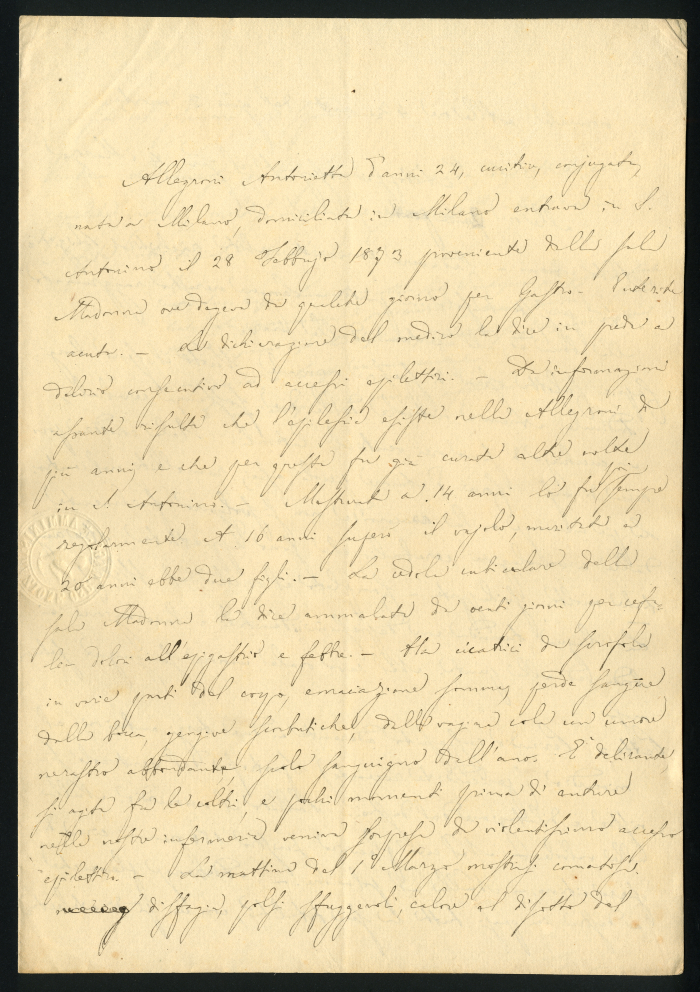 Allegroni Antonietta d'anni 24, cucitrice, conjugata,
nata a Milano, domiciliata in Milano entrava in S.
Antonino il 28 Febbrajo 1873 proveniente dalla sala
Madonna ove degeva da qualche giorno per Gastro-Enterite
acuta. — La dichiarazione del medico la dice in preda a
delirio consecutivo ad accessi epilettici. — Da informazioni
assunte risulta che l'epilessia esiste nella Allegroni da
più anni, e che per questa fu già curata altre volte
in S. Antonino. — Mestruata a 14 anni lo fu poi sempre
regolarmente. A 16 anni superò il vajolo, maritata a
20 anni ebbe due figli. — La cedola cubiculare della
sala Madonna la dice ammalata da venti giorni per cefa-
lea dolori all'epigastrio e febbre. — Ha cicatrici da scrofola
in varie parti del corpo, emaciazione somma, perde sangue
dalla bocca, gengive scorbutiche, dalla vagina cola un umore
nerastro abbondante, scolo sanguigno dall'ano. È delirante
si agita fra le coltri, e pochi momenti prima di entrare
nelle nostre infermerie veniva sorpresa da violentissimo accesso
epilettico. — La mattina del 1° Marzo mostrasi comatosa.
disfagia, polsi sfuggevoli, calore al disotto del